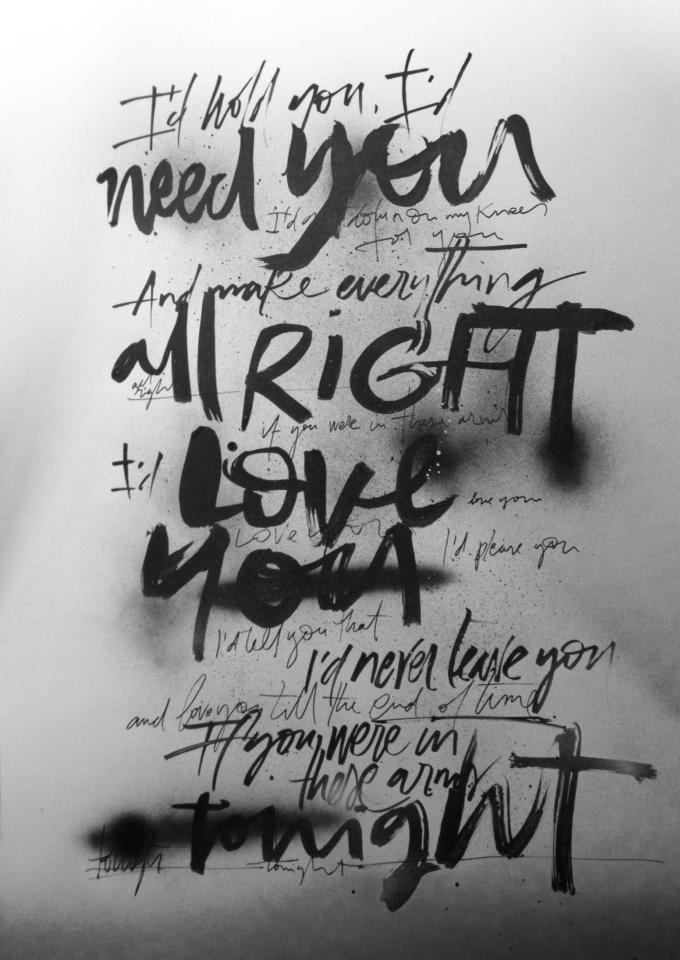 I'd hold you, I'd
need you
I'd get down on my knees
for you
And make everything
all RIGHT
all
right
if you were in these arms
I'd Love
love you
Love you
you
I'd please you
I'd tell you that
I'd never leave you
and love you till the end of time
If you were in
these arms
tonighT
tonight
tonight